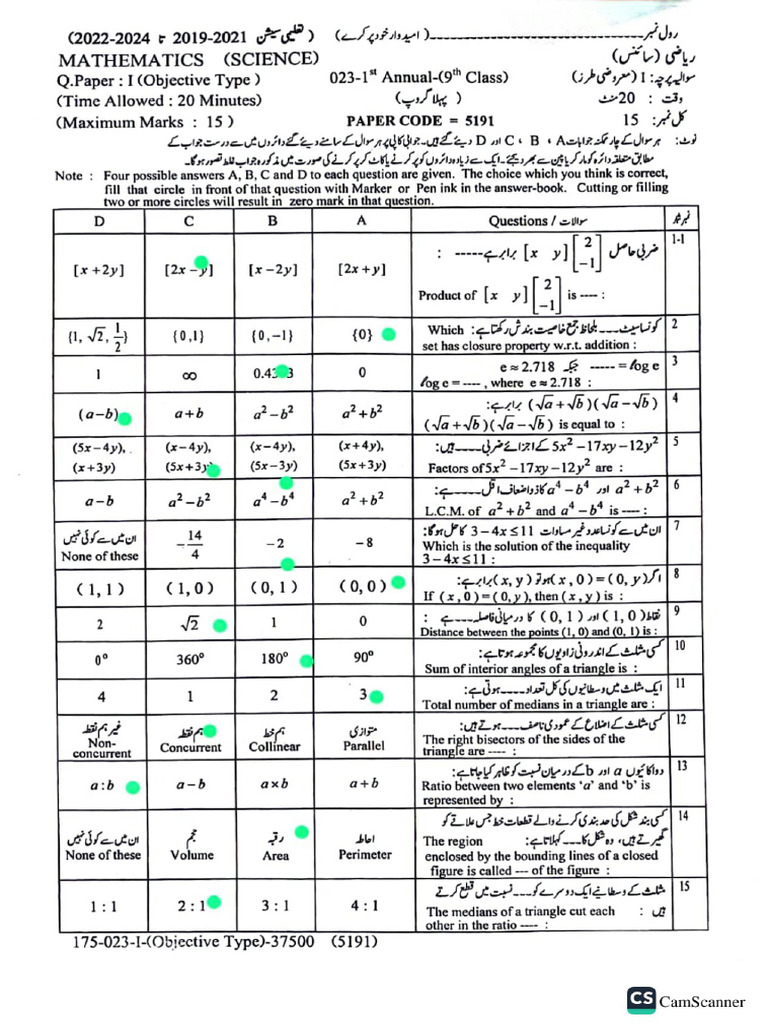 (2022-2024 تا 2019-2021 تعلیمی سیشن ) (امیدوار خود پر کرے) رول نمبر
MATHEMATICS (SCIENCE) ریاضی (سائنس)
Q.Paper : I (Objective Type ) 023-1st Annual-(9th Class) سوالیہ پرچہ: I (معروضی طرز)
(Time Allowed : 20 Minutes) (پہلا گروپ) وقت : 20 منٹ
(Maximum Marks : 15 ) PAPER CODE = 5191 کل نمبر: 15
نوٹ: ہر سوال کے چار ممکنہ جوابات A ، B ، C اور D دیئے گئے ہیں۔ جوابی کاپی پر ہر سوال کے سامنے دیئے گئے دائروں میں سے درست جواب کے
مطابق متعلقہ دائرہ کو مارکر یا پین سے بھر دیجئے۔ ایک سے زیادہ دائروں کو پر کرنے یا کاٹ کر پر کرنے کی صورت میں مذکورہ جواب غلط تصور ہو گا۔
Note : Four possible answers A, B, C and D to each question are given. The choice which you think is correct,
fill that circle in front of that question with Marker or Pen ink in the answer-book. Cutting or filling
two or more circles will result in zero mark in that question.
D C B A Questions / سوالات نمبر شمار
1-1 ضربی حاصل [x y] [2 -1] برابر ہے ----- :
[x + 2y] [2x - y] [x - 2y] [2x + y]
Product of [x y] [2 -1] is ---- :
2 کونسا سیٹ ---- بلحاظ جمع خاصیت بندش رکھتا ہے: Which
{1, √2, 1/2} {0,1} {0,-1} {0}
set has closure property w.r.t. addition :
3 e ≈ 2.718 جبکہ ----- = log e
1 ∞ 0.4343 0
log e = ----, where e ≈ 2.718 :
4 (√a + √b)(√a − √b) برابر ہے:
(a−b) a+b a² − b² a² + b²
(√a + √b)(√a − √b) is equal to :
5 5x² −17xy −12y² کے اجزائے ضربی ---- ہیں:
(5x − 4y), (x − 4y), (x − 4y), (x + 4y),
(x + 3y) (5x + 3y) (5x − 3y) (5x + 3y)
Factors of 5x² −17xy −12y² are :
6 a² + b² اور a⁴ − b⁴ کا ذو اضعاف اقل ---- ہے:
a − b a² − b² a⁴ − b⁴ a² + b²
L.C.M. of a² + b² and a⁴ − b⁴ is ---- :
7 ان میں سے کونسا عدد غیر مساوات 3 − 4x ≤ 11 کا حل ہوگا:
ان میں سے کوئی نہیں
None of these −14/4 −2 −8
Which is the solution of the inequality
3 − 4x ≤ 11 :
8 اگر (x, 0) = (0, y) ہو تو (x, y) برابر ہے:
(1, 1) (1, 0) (0, 1) (0, 0)
If (x, 0) = (0, y), then (x, y) is :
9 نقاط (1, 0) اور (0, 1) کا درمیانی فاصلہ ---- ہے :
2 √2 1 0
Distance between the points (1, 0) and (0, 1) is :
10 کسی مثلث کے اندرونی زاویوں کا مجموعہ ہوتا ہے:
0° 360° 180° 90°
Sum of interior angles of a triangle is :
11 ایک مثلث میں وسطانیوں کی کل تعداد ---- ہوتی ہے:
4 1 2 3
Total number of medians in a triangle are :
12 کسی مثلث کے اضلاع کے عمودی ناصف ---- ہوتے ہیں:
غیر ہم نقطہ ہم نقطہ ہم خط متوازی
Non-concurrent Concurrent Collinear Parallel
The right bisectors of the sides of the
triangle are ---- :
13 دو اکائیوں a اور b کے درمیان نسبت کو ظاہر کیا جاتا ہے:
a : b a − b a × b a + b
Ratio between two elements ‘a’ and ‘b’ is
represented by :
14 کسی بند شکل کی حد بندی کرنے والے قطعات خط جس علاقے کو
گھیرتے ہیں، وہ شکل کا ---- کہلاتا ہے: The region
ان میں سے کوئی نہیں حجم رقبہ احاطہ
None of these Volume Area Perimeter
enclosed by the bounding lines of a closed
figure is called --- of the figure :
15 مثلث کے وسطانیے ایک دوسرے کو ---- نسبت میں قطع کرتے
ہیں :
1 : 1 2 : 1 3 : 1 4 : 1
The medians of a triangle cut each
other in the ratio ---- :
175-023-I-(Objective Type)-37500 (5191)
CS CamScanner